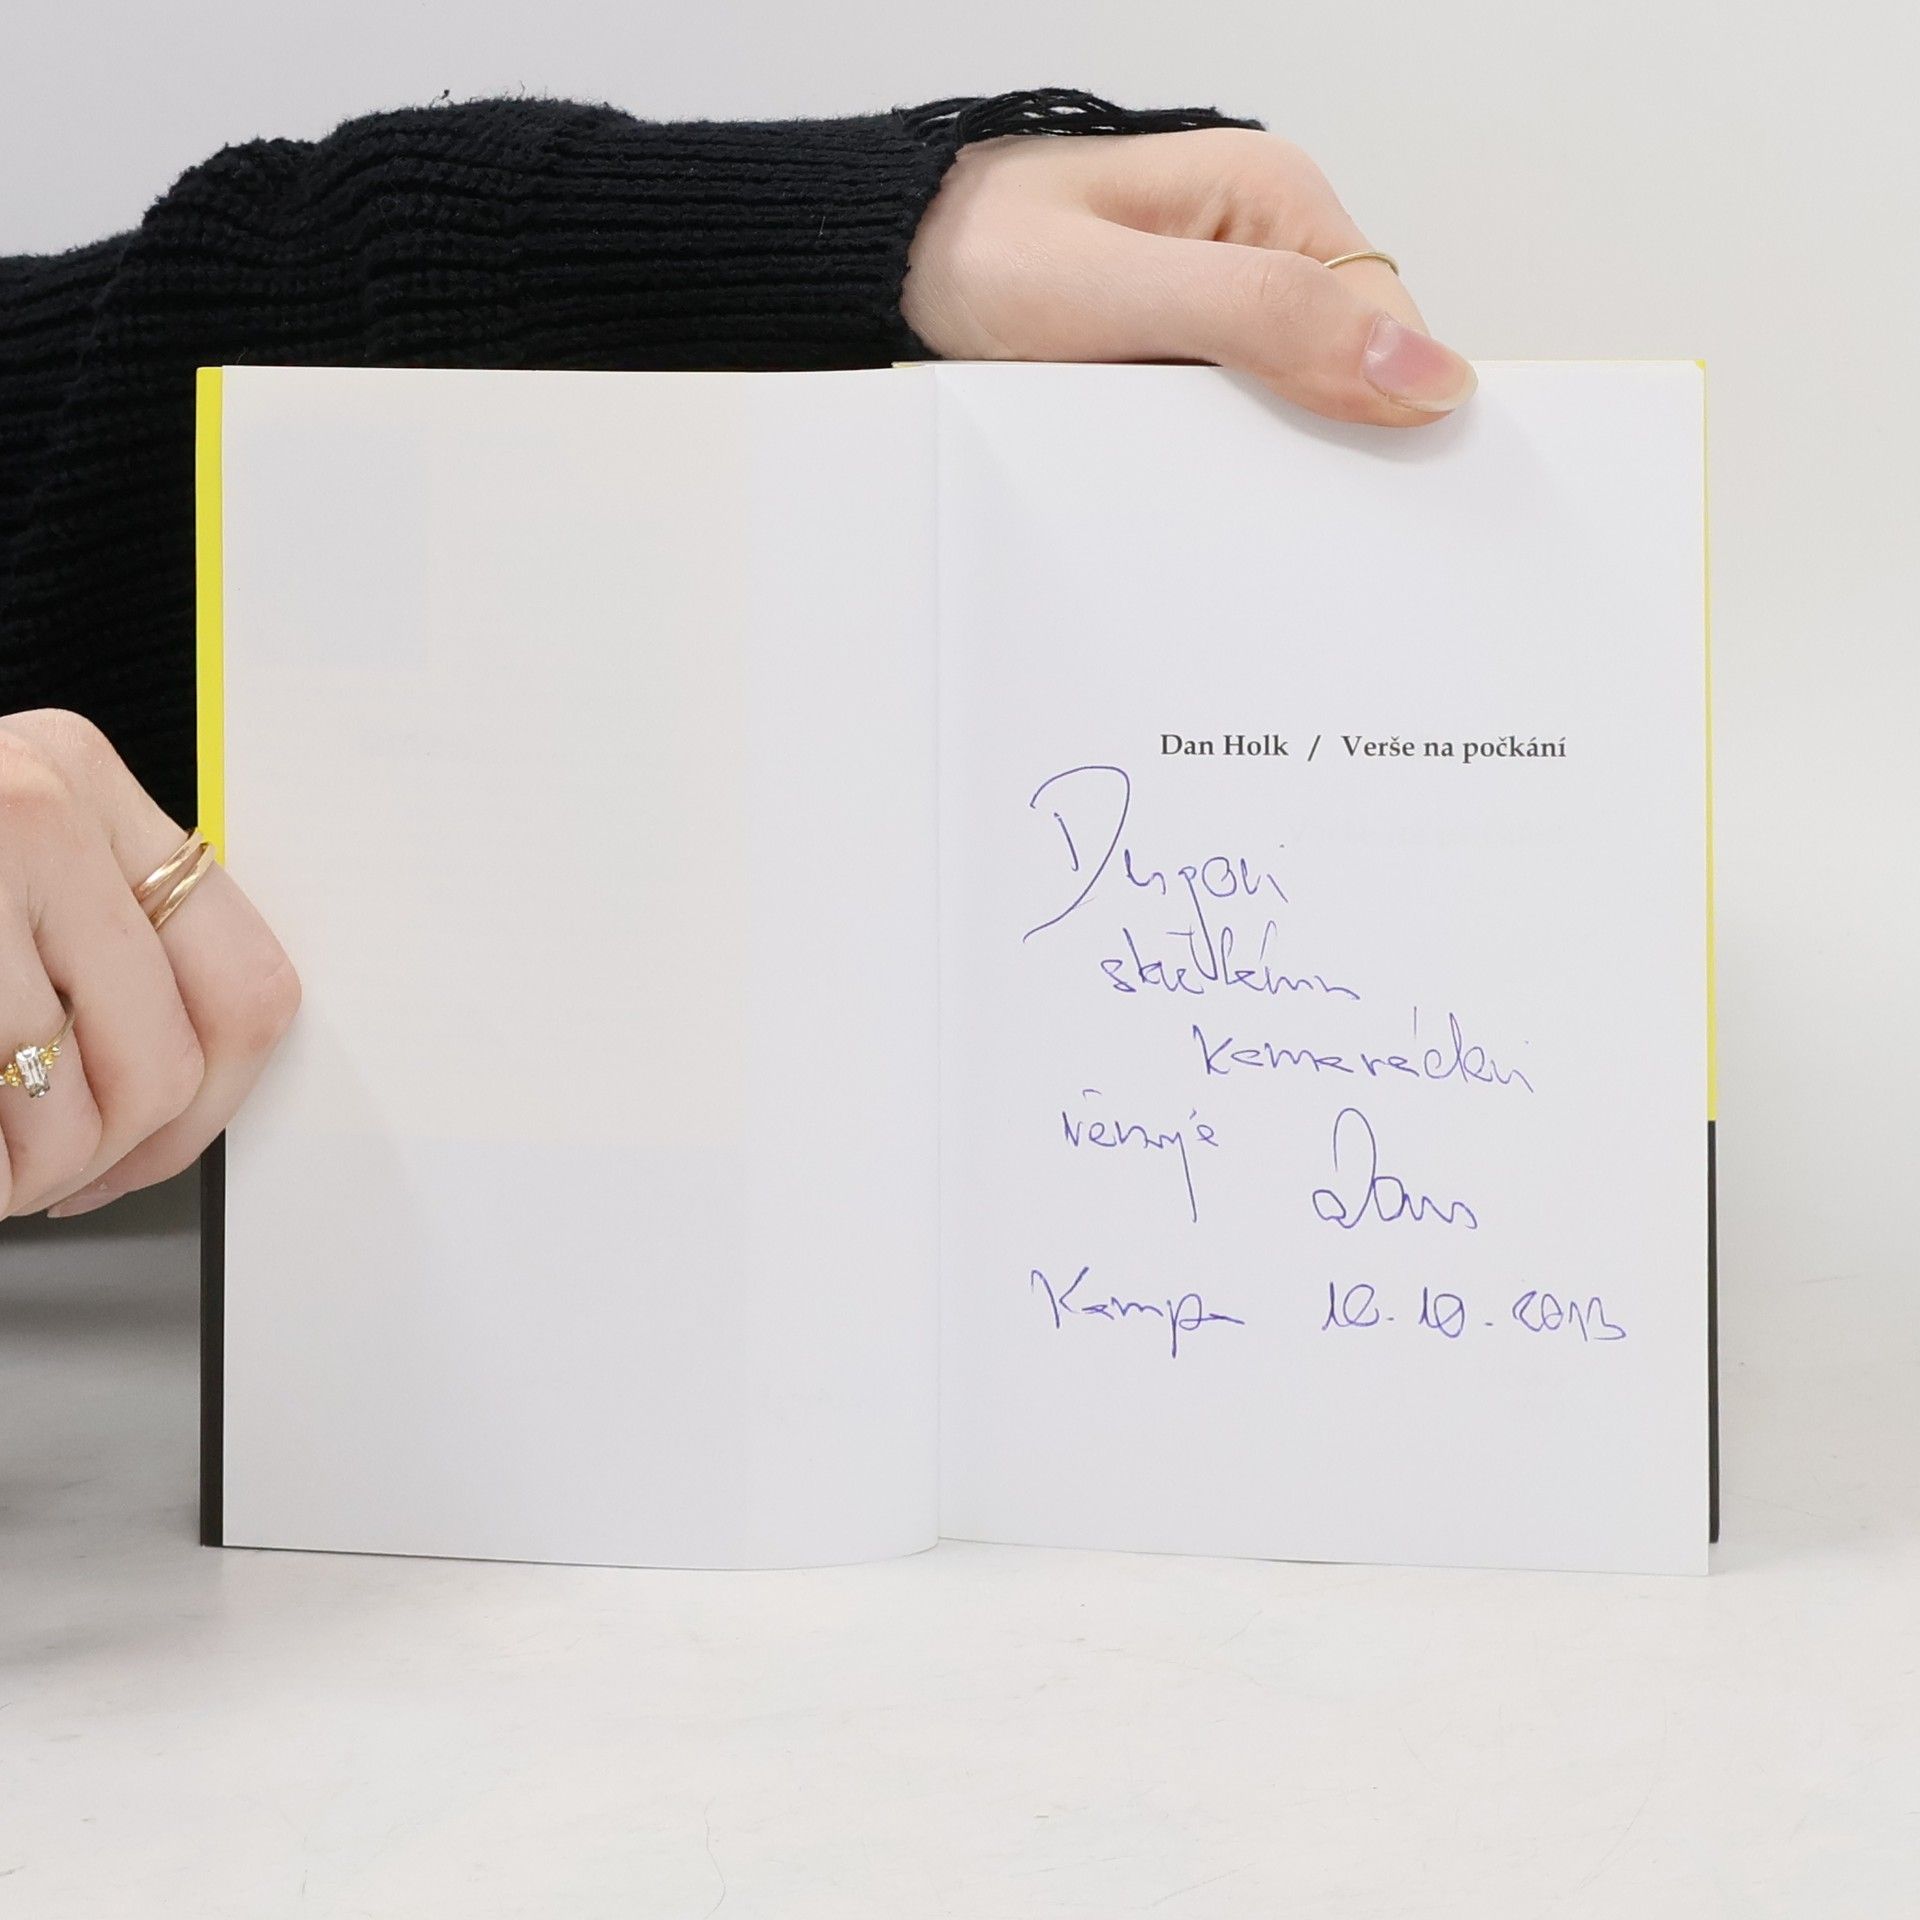 Dan Holk / Verše na počkání
skvělému
kamarádovi
věnuje Dan
Kampa 10.10.2013